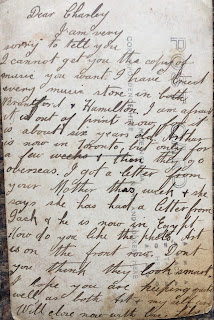 Dear Charley
I am very
sorry to tell you
I cannot get you the copy of
music you want I have tried
every music store in both
Brantford & Hamilton I am afraid
it is out of print now, for it
is about six years old. Arthur
is now in Toronto, but only for
a few weeks & then they go
overseas. I got a letter from
your Mother this week & she
says she has had a letter from
Jack & he is now in Egypt
How do you like the photo Art
is on the front row. Dont
you think they look smart,
I hope you are keeping quite
well as both Art & my self are
Will close now with love